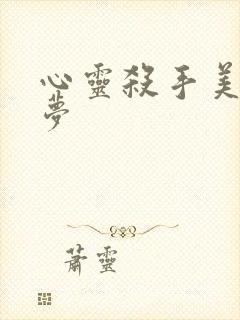 心靈殺手美
夢
蕭靈